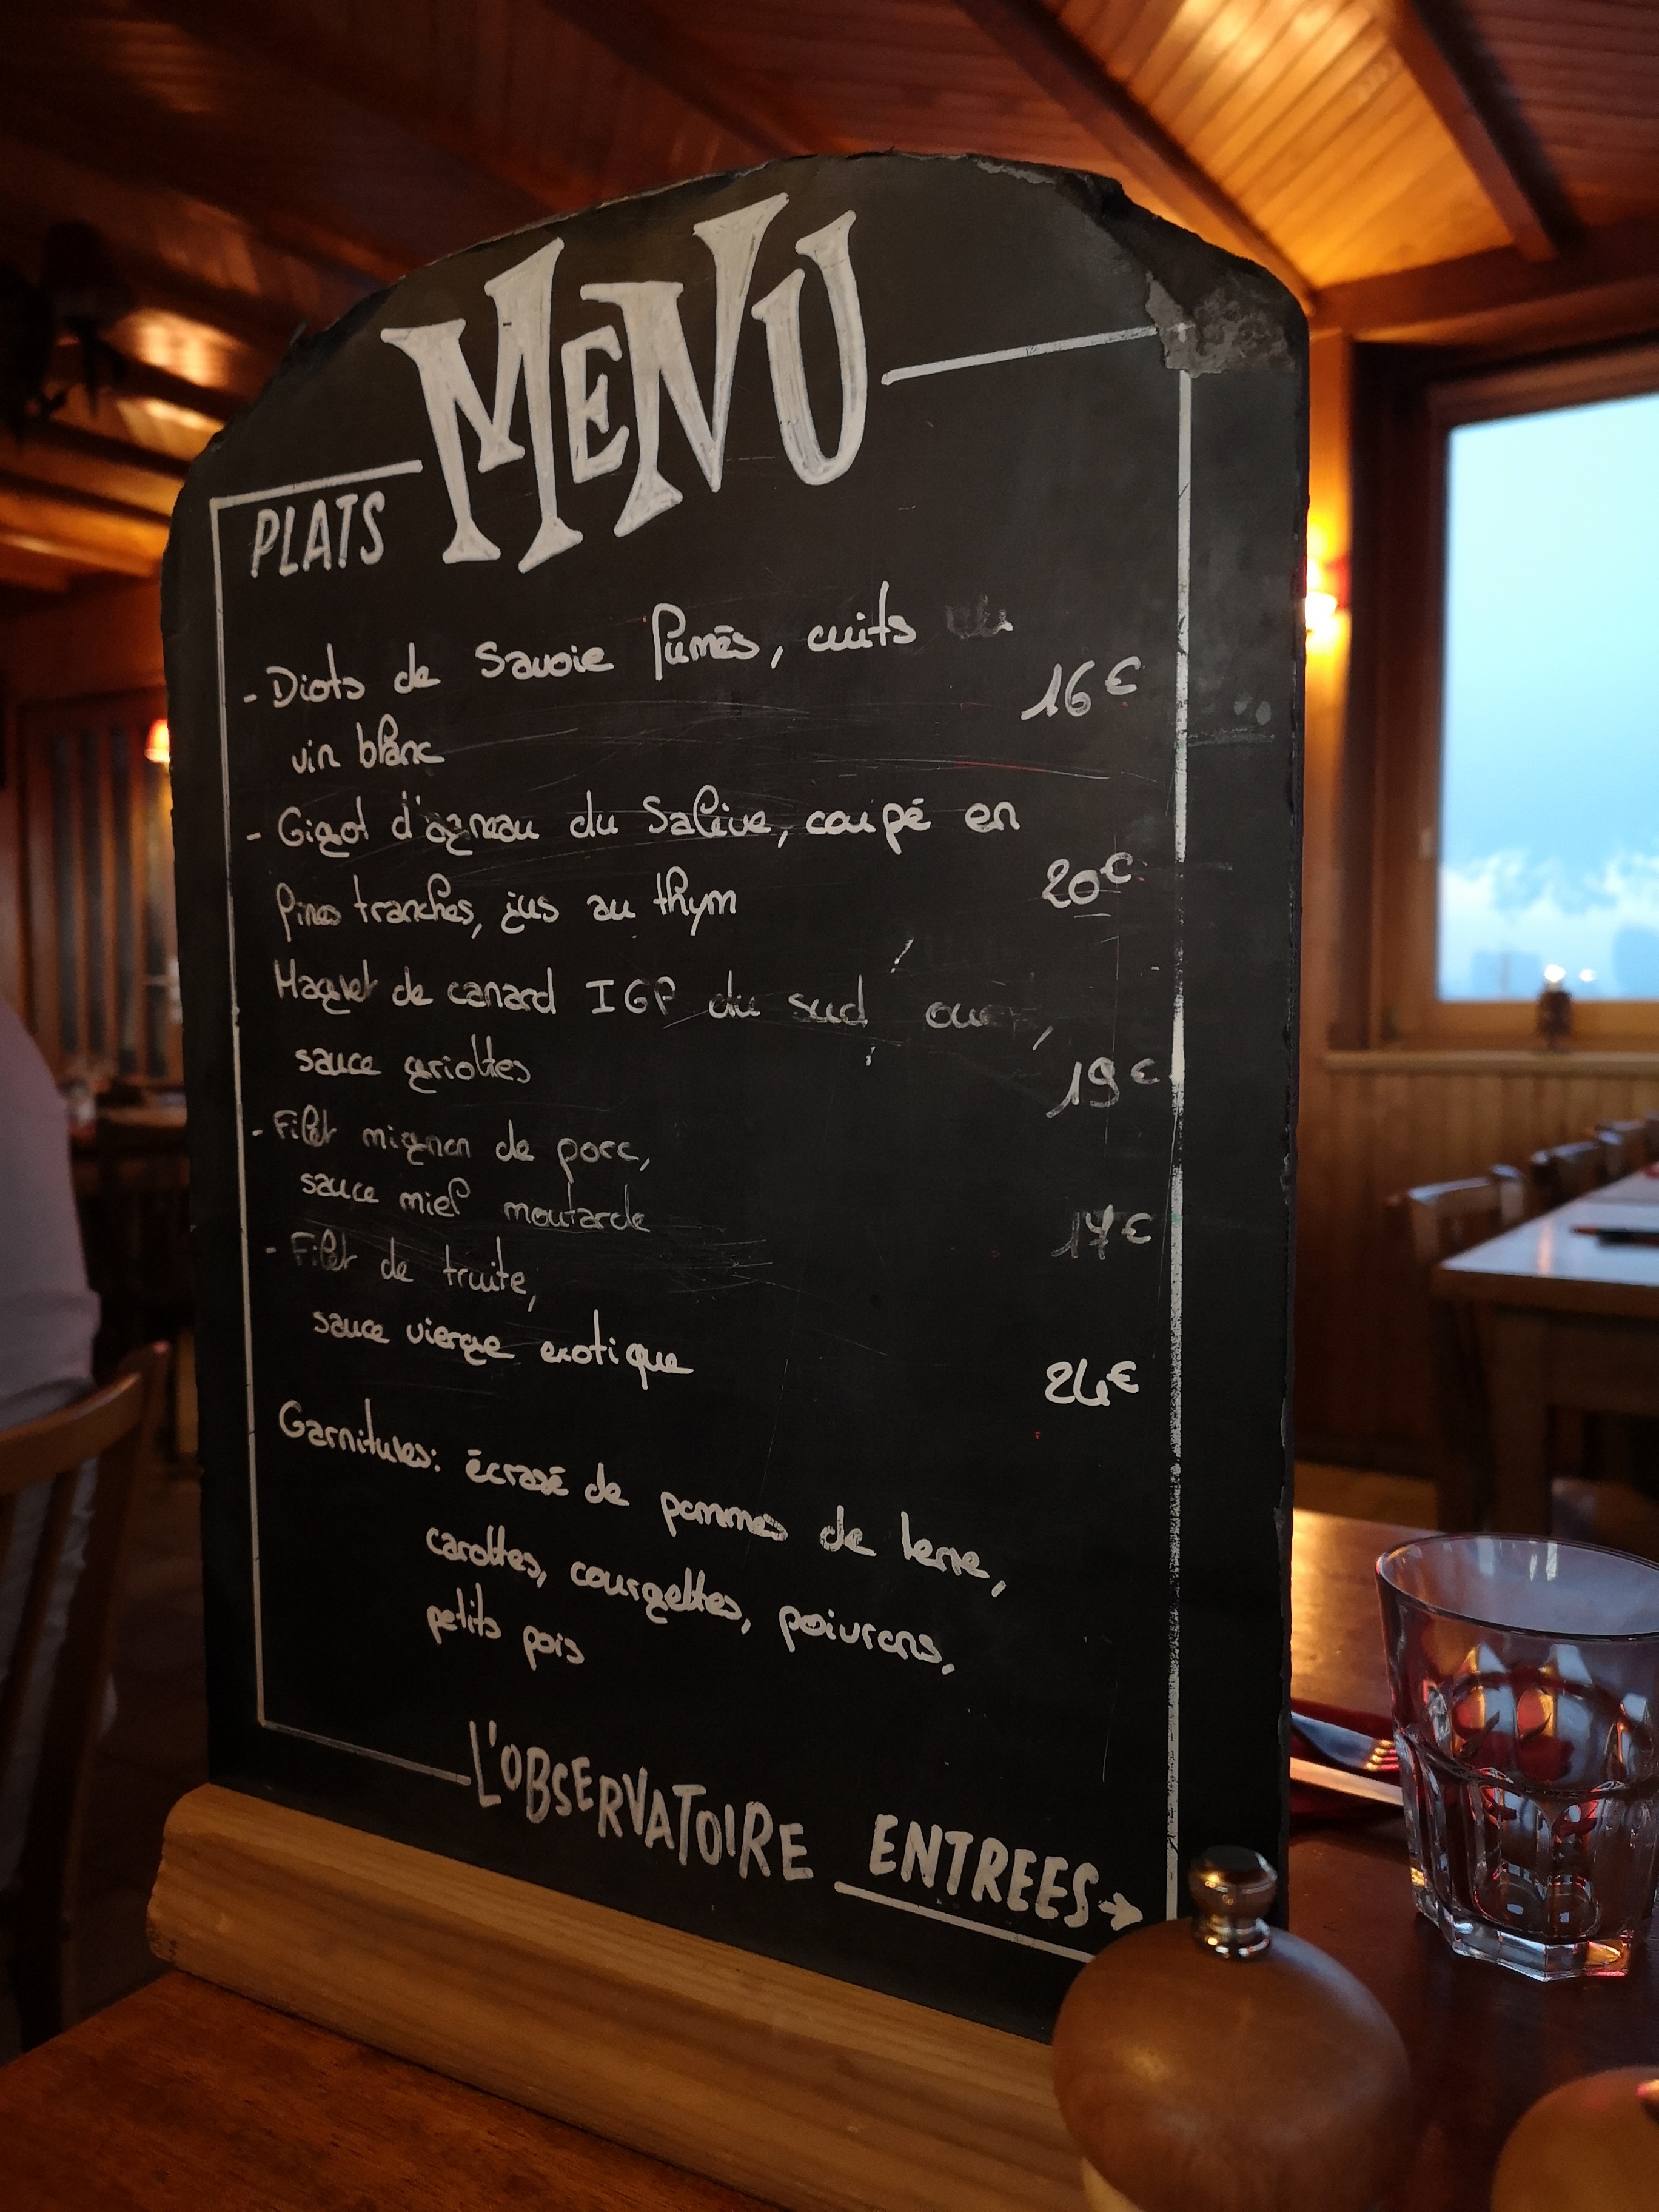 MENU
PLATS
- Diots de Savoie fumés, cuits
vin blanc
16€
- Gigot d'agneau du Salève, coupé en
fines tranches, jus au thym
20€
Magret de canard IGP du sud ouest,
sauce griottes
19€
- Filet mignon de porc,
sauce miel moutarde
17€
- Filet de truite,
sauce vierge exotique
24€
Garnitures: écrasé de pommes de terre,
carottes, courgettes, poivrons,
petits pois
L'OBSERVATOIRE
ENTREES→